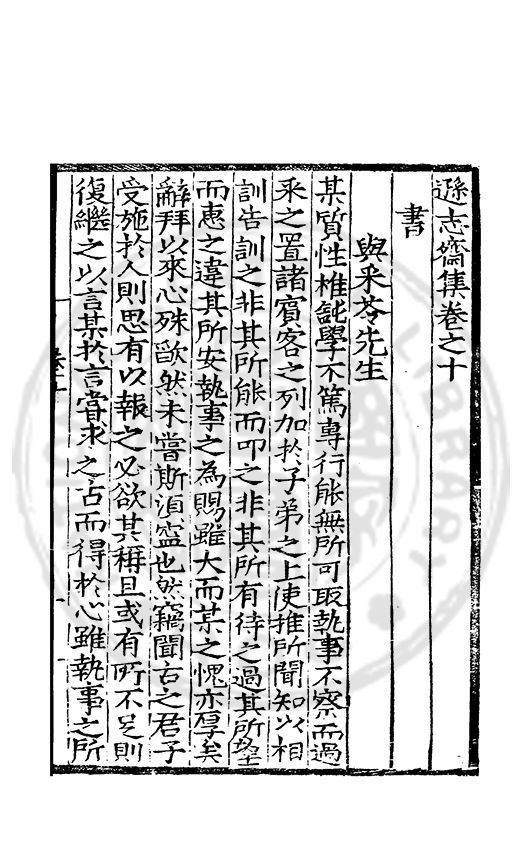 遜志齋集卷之十
書
與采苓先生
某質性椎鈍學不篤專行能無所可取執事不察而過
采之置諸賓客之列加於子弟之上使推所聞知以相
訓告訓之非其所能而叩之非其所有待之過其所望
而惠之違其所安執事之為賜雖大而某之愧亦厚矣
辭拜以來心殊歉然未嘗斯須寧也然竊聞古之君子
受施於人則思有以報之必欲其稱且或有所不足則
復繼之以言某於言嘗求之古而得於心雖執事之所